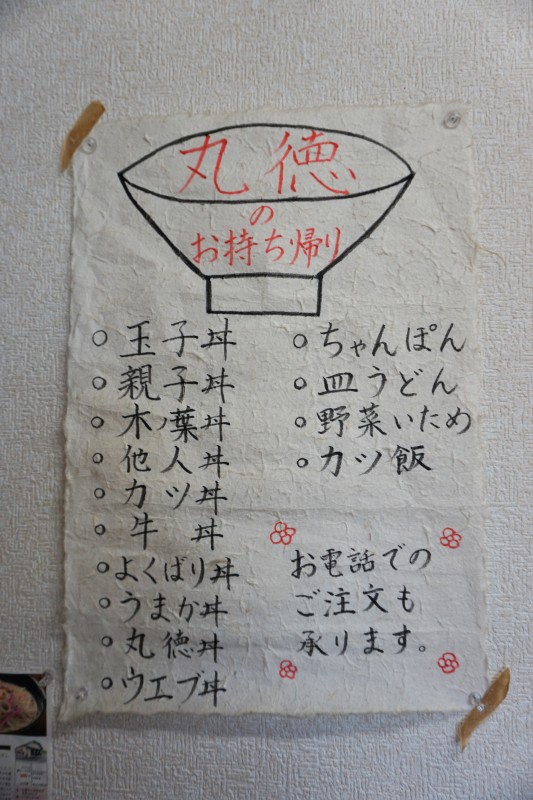 丸徳
の
お持ち帰り
○玉子丼
○親子丼
○木ノ葉丼
○他人丼
○カツ丼
○牛丼
○よくばり丼
○うまか丼
○丸徳丼
○ウエブ丼
○ちゃんぽん
○皿うどん
○野菜いため
○カツ飯
お電話での
ご注文も
承ります。